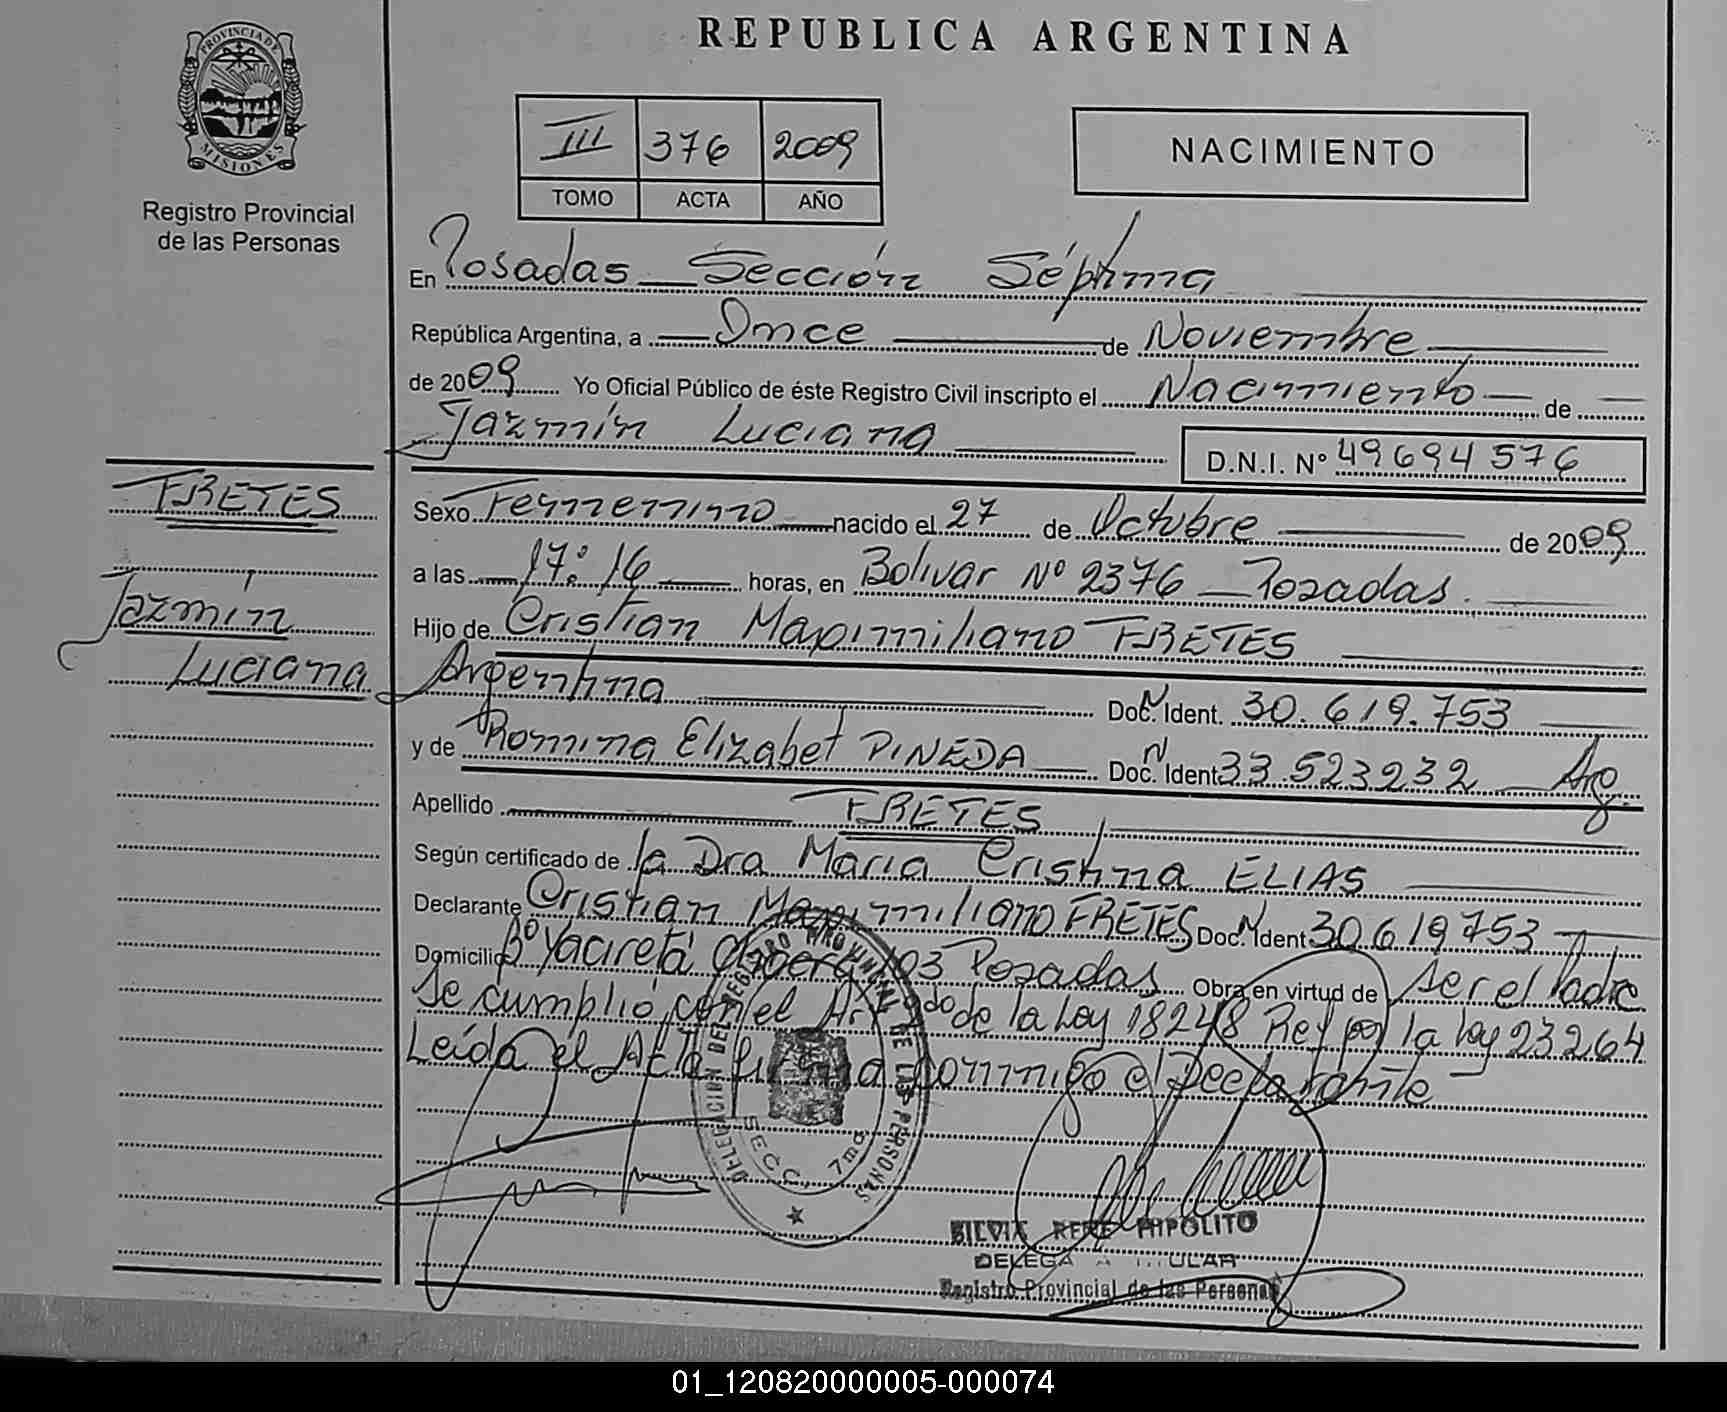 REPUBLICA ARGENTINA
PROVINCIA DE MISIONES
Registro Provincial
de las Personas
III 376 2009
TOMO ACTA AÑO
NACIMIENTO
En Posadas Sección Séptima
República Argentina, a Once de Noviembre
de 2009 Yo Oficial Público de éste Registro Civil inscripto el Nacimiento de
Jazmín Luciana D.N.I. Nº 49694576
FRETES
Jazmín
Luciana
Sexo Femenino nacido el 27 de Octubre de 2009
a las 17:16 horas, en Bolivar Nº 2376 Posadas.
Hijo de Cristian Maximiliano FRETES
Argentina Doc. N Ident. 30.619.753
y de Romina Elizabet PINEDA Doc. N Ident 33.523232 Arg.
Apellido FRETES
Según certificado de la Dra María Cristina ELIAS
Declarante Cristian Maximiliano FRETES Doc. N Ident 30619753
Domicilio Bº Yacireta 103 Posadas Obra en virtud de ser el Padre
Se cumplió con el Art 2do de la Ley 18248 Ref por la ley 23264
Leída el Acta firma conmigo el Declarante
DELEGACION DEL REGISTRO PROVINCIAL DE LAS PERSONAS
SECC. 7ma.
SILVIA RENE HIPOLITO
Registro Provincial de las Personas
01_120820000005-000074